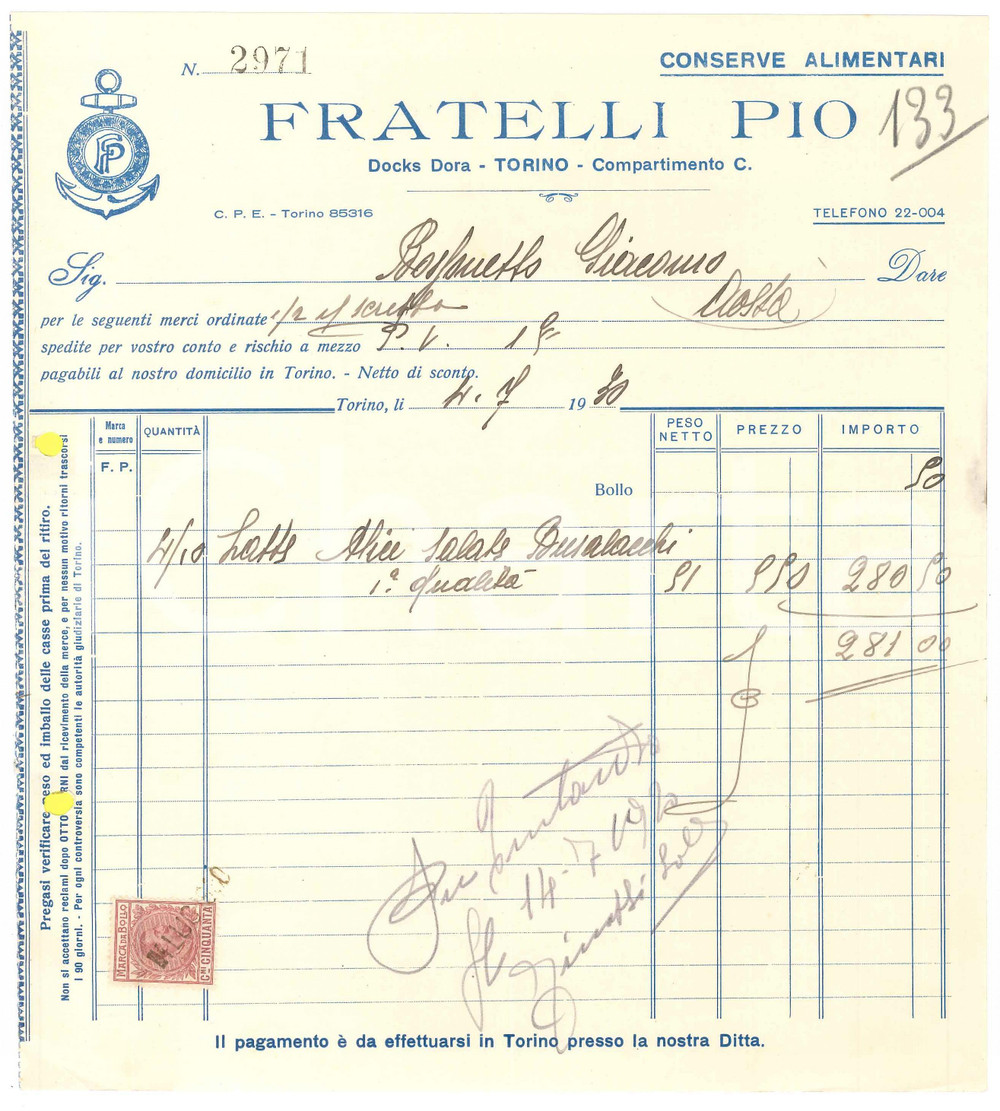 N. 2971
CONSERVE ALIMENTARI
133
FRATELLI PIO
FP
Docks Dora - TORINO - Compartimento C.
C. P. E. - Torino 85316
TELEFONO 22-004
Sig. Giacomo Dare
Aosta
per le seguenti merci ordinate
spedite per vostro conto e rischio a mezzo P.V.
pagabili al nostro domicilio in Torino. - Netto di sconto.
Torino, li 4.7 1930
Marca e numero
QUANTITÀ
PESO NETTO
PREZZO
IMPORTO
F. P.
Bollo 50
4/10 Latte Alici Salate Busalacchi
1ª qualità 51 550 280 50
281 00
14-7
Pregasi verificare peso ed imballo delle casse prima del ritiro.
Non si accettano reclami dopo OTTO RNI dal ricevimento della merce, e per nessun motivo ritorni trascorsi
i 90 giorni. - Per ogni controversia sono competenti le autorità giudiziarie di Torino.
MARCA DA BOLLO
CMI CINQUANTA
Il pagamento è da effettuarsi in Torino presso la nostra Ditta.